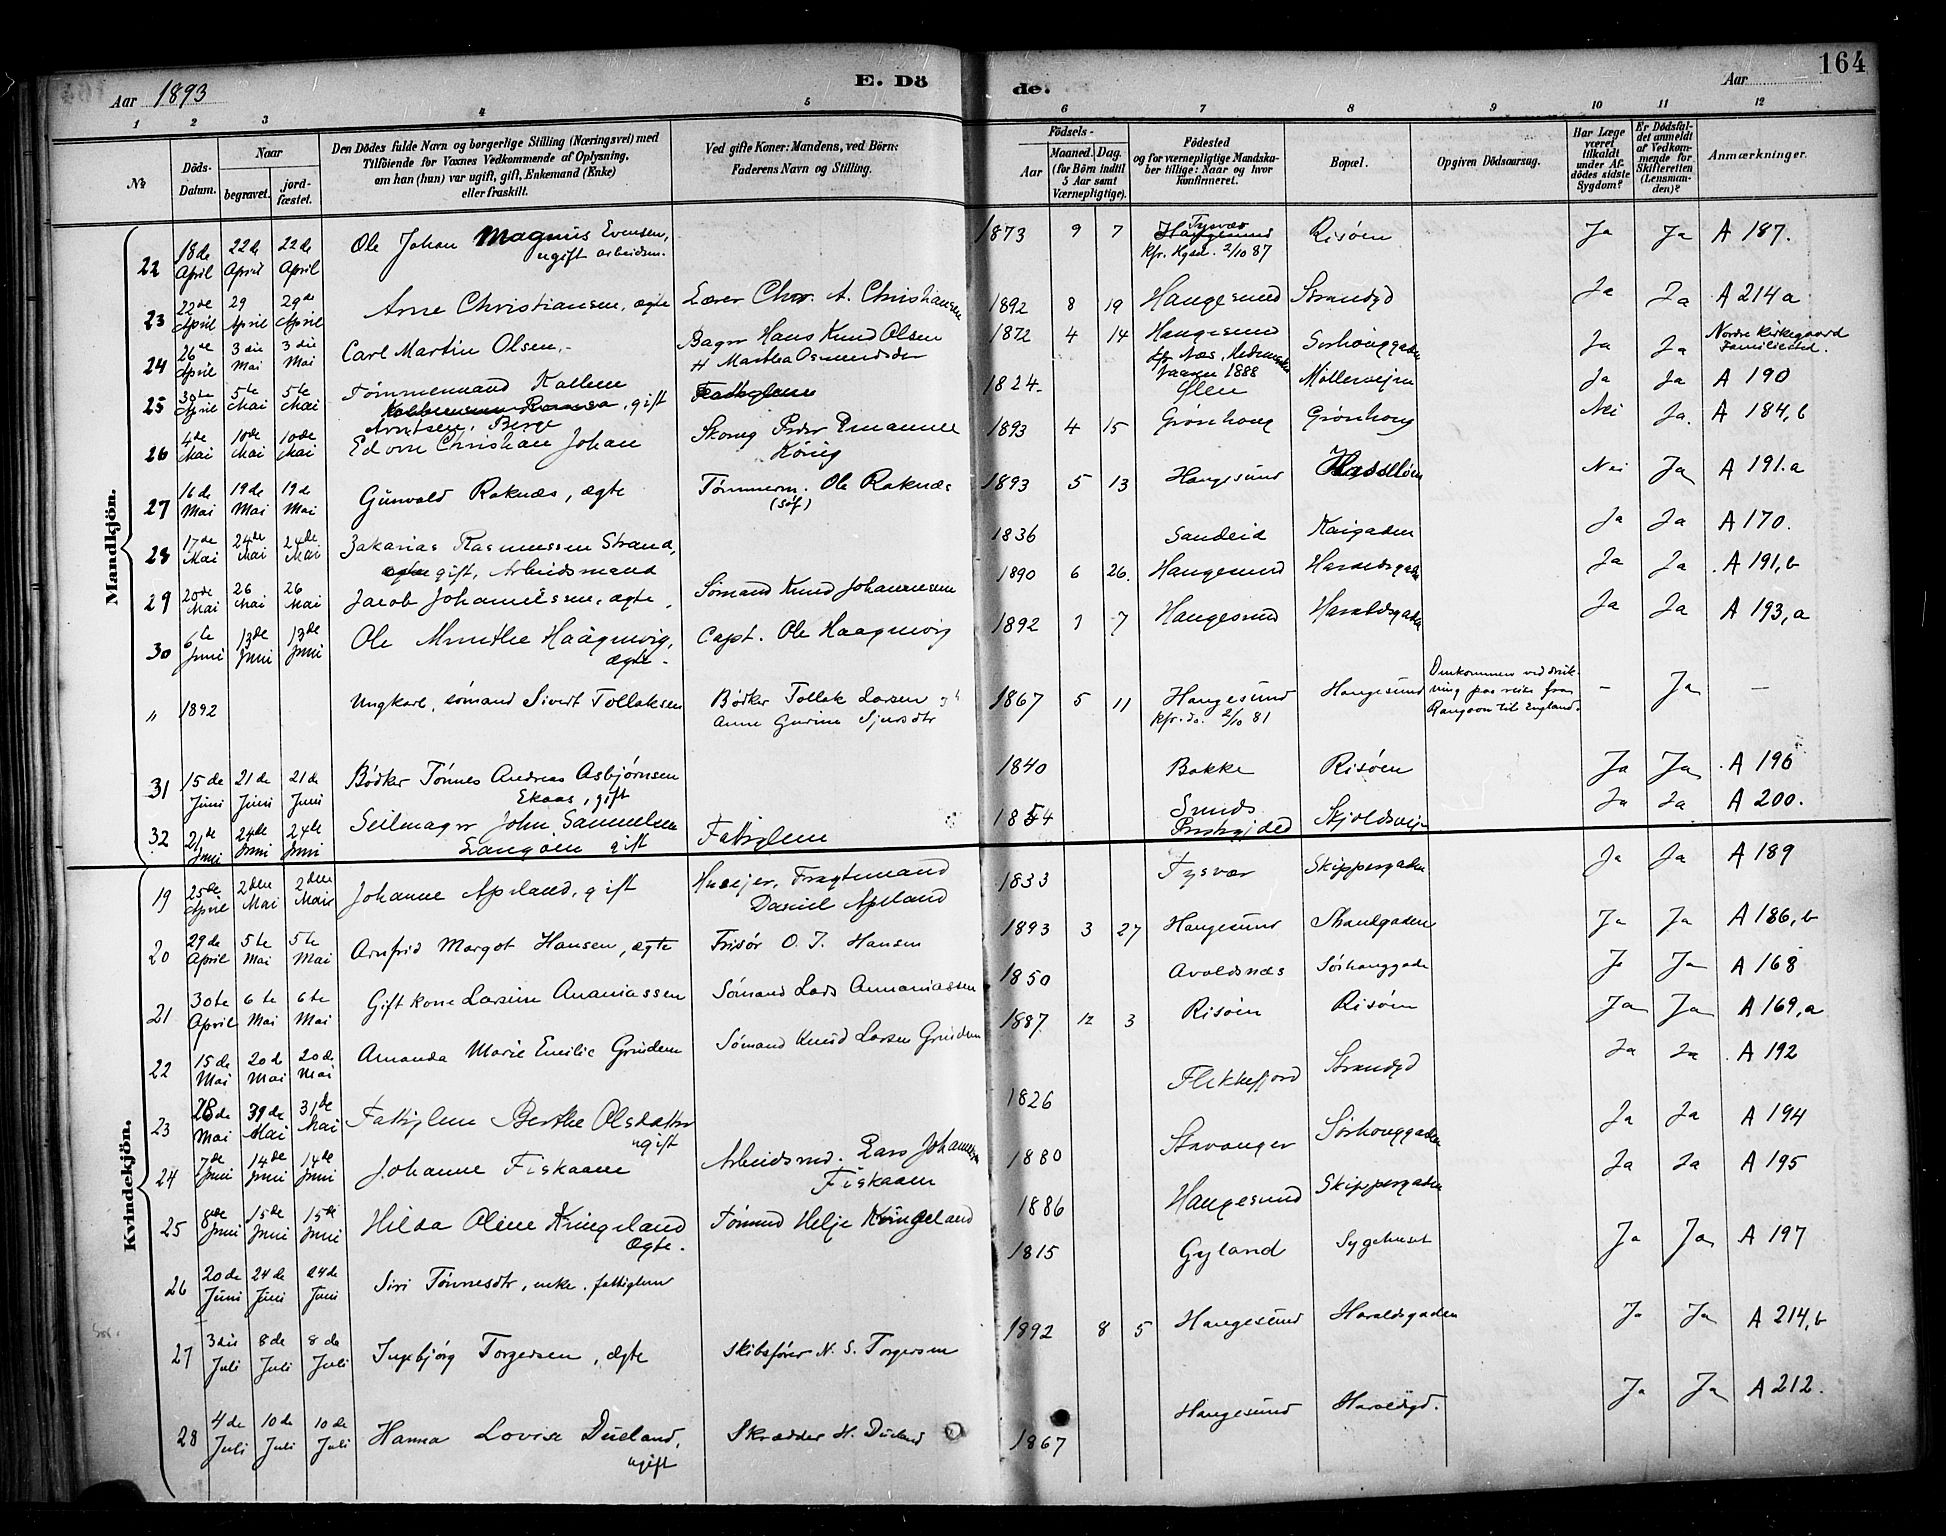 164
Aar 1893 E. Döde. Aar
1 2 3 4 5 6 7 8 9 10 11 12
No
Döds-Datum.
Naar
begravet. jord-fæstet.
Den Dödes fulde Navn og borgerlige Stilling (Næringsvei) med
Tilföiende for Voxnes Vedkommende af Oplysning,
om han (hun) var ugift, gift, Enkemand (Enke)
eller fraskilt.
Ved gifte Koner: Mandens, ved Börn:
Faderens Navn og Stilling.
Födsels-
Aar Maaned. Dag.
(for Börn indtil
5 Aar samt
Værnepligtige).
Födested
og for værnepligtige Mandska-
ber tillige: Naar og hvor
konfirmeret.
Bopæl.
Opgiven Dödsaarsag.
Har Læge
været
tilkaldt
under Af-
dödes sidste
Sygdom?
Er Dödsfal-
det anmeldt
af Vedkom-
mende for
Skifteretten
(Lensman-
den)?
Anmærkninger.
Mandkjön.
22 18de April 22de April 22de April Ole Johan Magnus Evensen, 1873 9 7 Tysvær Risøen Ja Ja A 187.
ugift arbeidsm. Kfr. Hgsd. 2/10 87
23 22de April 29 April 29de April Arne Christiansen, ægte Lærer Chr. A. Christiansen 1892 8 19 Haugesund Strandgd Ja Ja A 214 a
24 26de April 3die Mai 3die Mai Carl Martin Olsen. Bager Hans Knud Olsen 1872 4 14 Haugesund Sørhauggaden Ja Ja Nordre Kirkegaard
Familiested.
H Martha Osmundsdr
1888
25 30te April 5te Mai 5te Mai Tømmermand 1824 Ølen Møllerveien Ja Ja A 190
gift
Arntsen, Berge
26 4de Mai 10de Mai 10de Mai Christian Johan Emanuel 1893 4 15 Grønhaug Grønhaug Nei Ja. A 184, b
König
27 16de Mai 19de Mai 19de Mai Gunvald Roknæs, ægte Tømmerm. Ole Roknæs 1893 5 13 Haugesund Hasseløen Nei Ja A 191. a
28 17de Mai 24de Mai 24de Mai Zakarias Rasmussen Strand, 1836 Sandeid Kaigaden Ja Ja A 170.
gift, Arbeidsmand
29 20de Mai 26 Mai 26 Mai Jacob Johannessen, ægte Sømand Knud Johannesen 1890 6 26. Haugesund Haraldsgaden Ja Ja A 191, b
30 6te Juni 13de Juni 13de Juni Ole Munthe Haagensvig, Capt. Ole Haagensvig 1892 7 Haugesund Haraldsgaden Ja Ja A 193, a
ægte.
" 1892 Ungkarl, sømand Sivert Tollaksen Bødker Tollak Larsen 1867 5 11 Haugesund Haugesund Omkommen ved druk-
ning paa reise fra
Rangoon til England. - Ja -
Anne Gurine Sjursdtr kfr. do. 2/10 81
31 15de Juni 21de Juni 21de Juni Bødker Tønnes Andreas Asbjørnsen 1840 Bakke Risøen Ja Ja A 196
Ekaas, gift
32 21de Juni 24de Juni 24de Juni Seilmager John Samuelsen Fattiglem 1854 Skjoldsveien Ja Ja A 200.
Langøen gift
Kvindekjön.
19 25de April 2den Mai 2den Mai Johanne Apeland, gift Huseier, Fragtemand 1833 Tysvær Skippergaden Ja Ja A 189
Daniel Apeland
20 29de April 5te Mai 5te Mai Arnfrid Margot Hansen, ægte Frisør O. J. Hansen 1893 3 27 Haugesund Strandgaden Ja Ja A 186, b
21 30te April 6te Mai 6te Mai Gift kone Larsine Ananiassen Sømand Lars Annaniassen 1850 Avaldsnæs Sørhauggade Ja Ja A 168
22 15de Mai 20de Mai 20de Mai Amanda Marie Emilie Grinden Sømand Knud Larsen Grinden 1887 12 3 Risøen Risøen Ja Ja A 169, a
23 28de Mai 31de Mai 31de Mai Fattiglem Berthe Olsdatter 1826 Flekkefjord Strandgd Ja Ja A 192
ugift
24 7de Juni 14de Juni 14de Juni Johanne Fiskaaen Arbeidsmd. Lars Johannesen 1880 Stavanger Sørhauggaden Ja Ja A 194
Fiskaaen
25 8de Juni 15de Juni 15de Juni Hilda Oline Kringeland Tømmd Helje Kringeland 1886 Haugesund Skippergaden Ja Ja A 195
Ægte.
26 20de Juni 24de Juni 24de Juni Siri Tønnesdtr, enke. fattiglem 1815 Gyland Sygehuset Ja Ja A 197
27 3die Juli 8de Juli 8de Juli Ingebjørg Torgersen, ægte Skibsfører N. S. Torgersen 1892 8 5 Haugesund Haraldsgaden Ja Ja A 214, b
28 4de Juli 10de Juli 10de Juli Hanna Lovise Dueland, Skrædder H. Dueland 1867 Haugesund Haraldsgd. Ja Ja A 212.
ugift